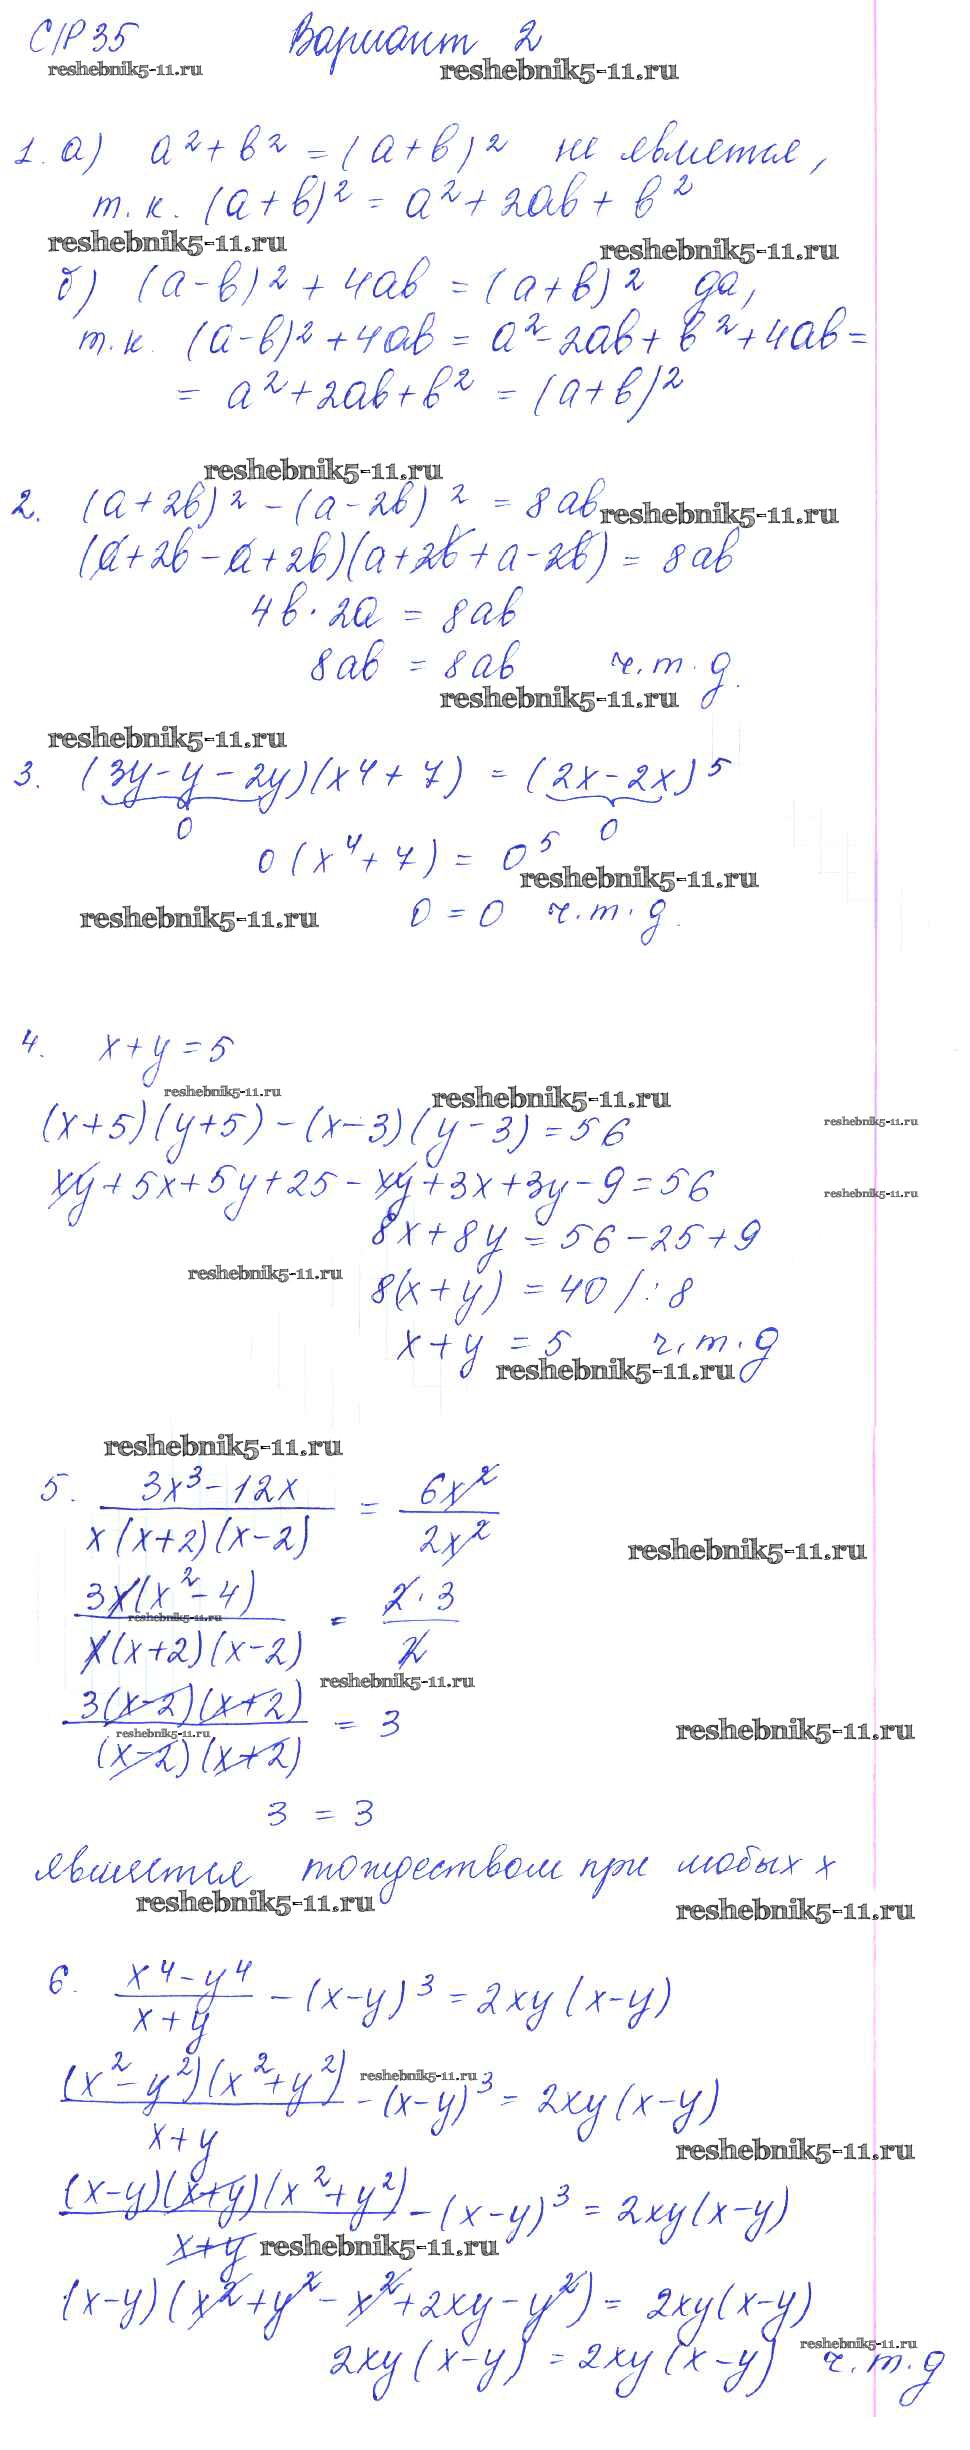 С/Р 35 Вариант 2
reshebnik5-11.ru reshebnik5-11.ru
1. а) a² + b² = (a + b)² не является,
т.к. (a + b)² = a² + 2ab + b²
reshebnik5-11.ru reshebnik5-11.ru
б) (a - b)² + 4ab = (a + b)² да,
т.к. (a - b)² + 4ab = a² - 2ab + b² + 4ab =
= a² + 2ab + b² = (a + b)²
reshebnik5-11.ru
2. (a + 2b)² - (a - 2b)² = 8ab
reshebnik5-11.ru
(a + 2b - a + 2b)(a + 2b + a - 2b) = 8ab
4b · 2a = 8ab
8ab = 8ab ч.т.д.
reshebnik5-11.ru
reshebnik5-11.ru
3. (3y - y - 2y)(x⁴ + 7) = (2x - 2x)⁵
0 0
0(x⁴ + 7) = 0⁵
reshebnik5-11.ru
reshebnik5-11.ru 0 = 0 ч.т.д.
4. x + y = 5
reshebnik5-11.ru reshebnik5-11.ru
(x + 5)(y + 5) - (x - 3)(y - 3) = 56
reshebnik5-11.ru
xy + 5x + 5y + 25 - xy + 3x + 3y - 9 = 56
reshebnik5-11.ru
8x + 8y = 56 - 25 + 9
reshebnik5-11.ru
8(x + y) = 40 / : 8
x + y = 5 ч.т.д
reshebnik5-11.ru
reshebnik5-11.ru
5. (3x³ - 12x)/(x(x + 2)(x - 2)) = 6x²/2x²
reshebnik5-11.ru
3x(x² - 4)/(x(x + 2)(x - 2)) = 2 · 3/2
reshebnik5-11.ru
reshebnik5-11.ru
3(x - 2)(x + 2)/((x - 2)(x + 2)) = 3
reshebnik5-11.ru
reshebnik5-11.ru
3 = 3
является тождеством при любых x
reshebnik5-11.ru reshebnik5-11.ru
6. (x⁴ - y⁴)/(x + y) - (x - y)³ = 2xy(x - y)
(x² - y²)(x² + y²)/(x + y) - (x - y)³ = 2xy(x - y)
reshebnik5-11.ru
reshebnik5-11.ru
(x - y)(x + y)(x² + y²)/(x + y) - (x - y)³ = 2xy(x - y)
reshebnik5-11.ru
(x - y)(x² + y² - x² + 2xy - y²) = 2xy(x - y)
reshebnik5-11.ru
2xy(x - y) = 2xy(x - y) ч.т.д